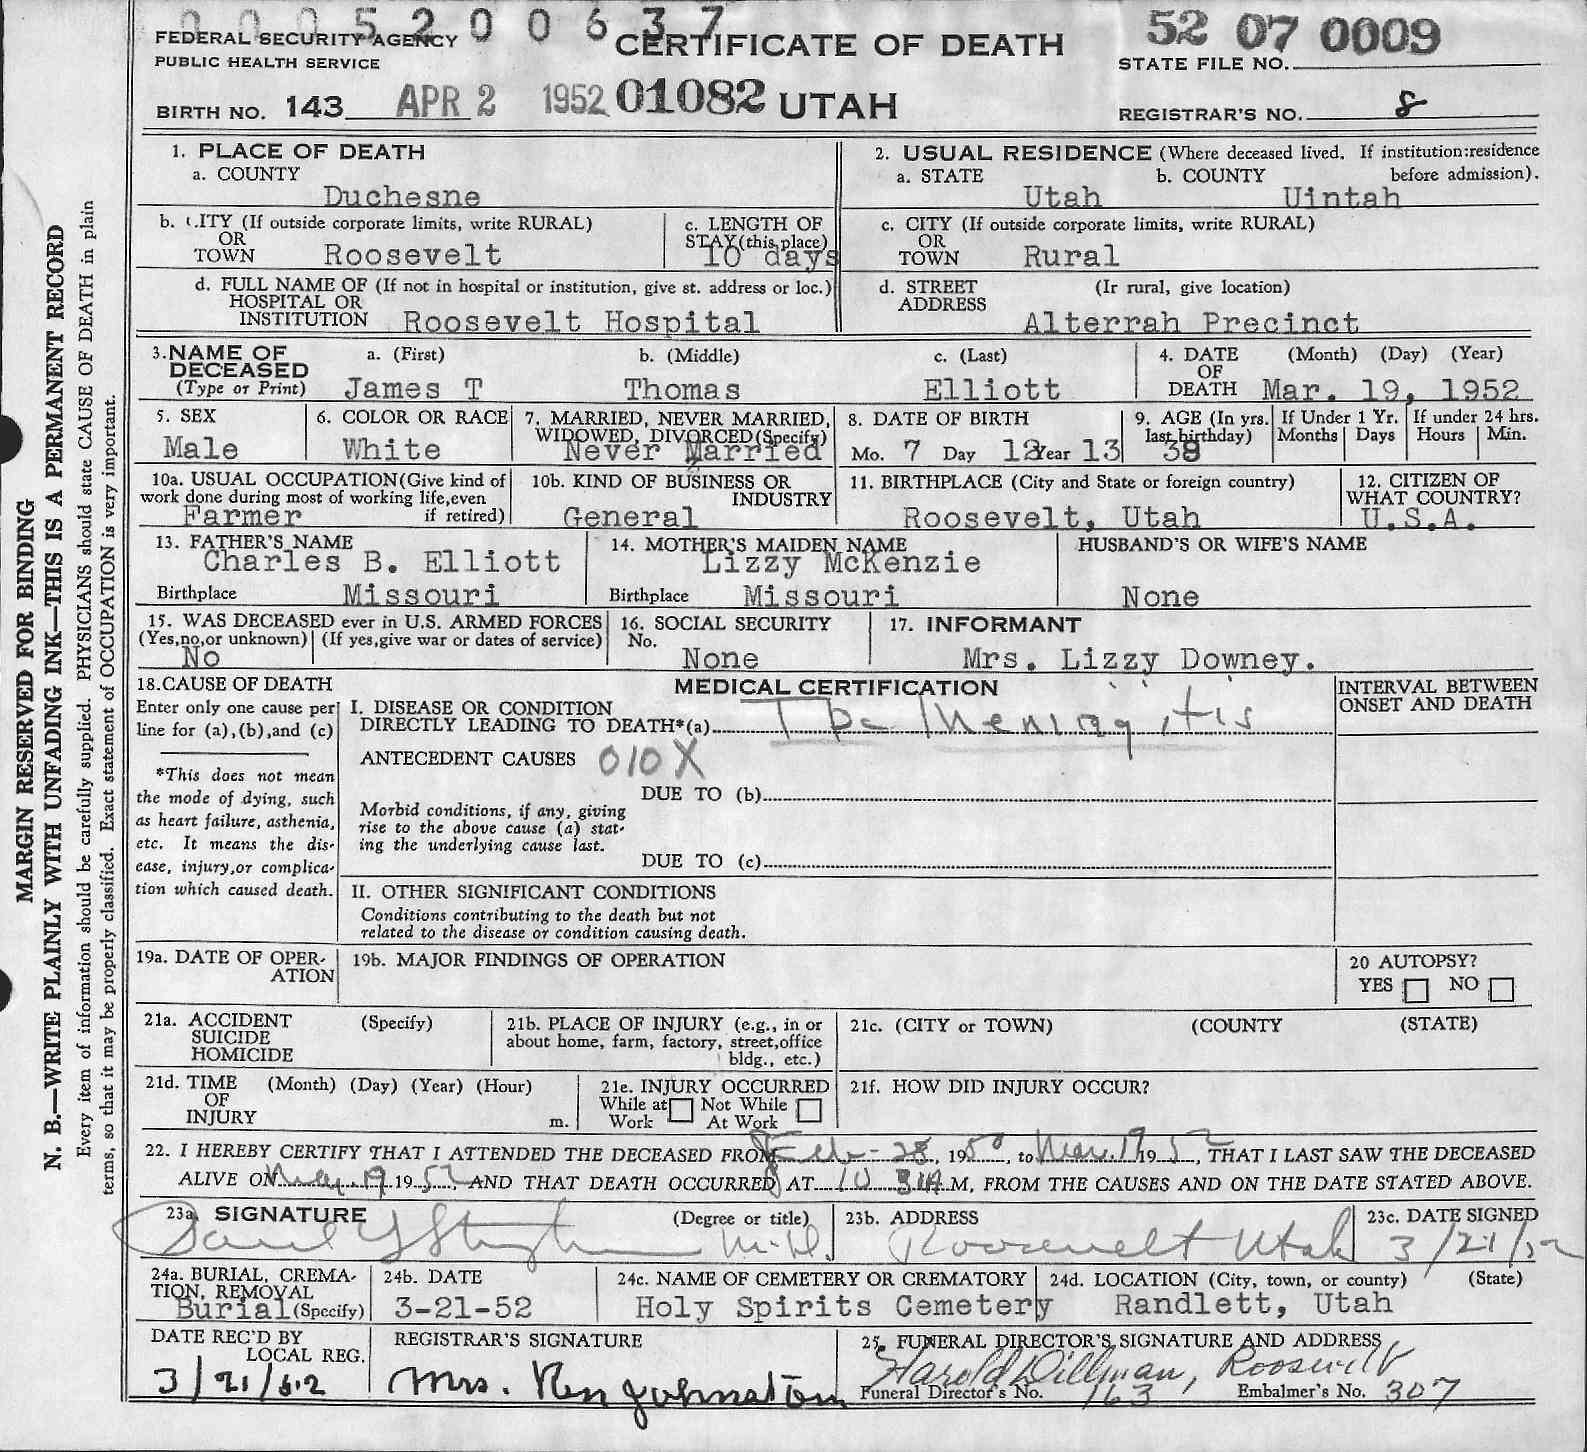 0005200637
FEDERAL SECURITY AGENCY
PUBLIC HEALTH SERVICE
CERTIFICATE OF DEATH
52 07 0009
STATE FILE NO.
BIRTH NO. 143 APR 2 1952 01082 UTAH
REGISTRAR'S NO. 8
1. PLACE OF DEATH
a. COUNTY
Duchesne
2. USUAL RESIDENCE (Where deceased lived. If institution:residence
a. STATE b. COUNTY before admission).
Utah Uintah
b. CITY (If outside corporate limits, write RURAL)
OR
TOWN Roosevelt
c. LENGTH OF
STAY(this place)
10 days
c. CITY (If outside corporate limits, write RURAL)
OR
TOWN Rural
d. FULL NAME OF (If not in hospital or institution, give st. address or loc.)
HOSPITAL OR
INSTITUTION Roosevelt Hospital
d. STREET (Ir rural, give location)
ADDRESS
Alterrah Precinct
3. NAME OF
DECEASED
(Type or Print)
a. (First) b. (Middle) c. (Last)
James T Thomas Elliott
4. DATE (Month) (Day) (Year)
OF
DEATH Mar. 19, 1952
5. SEX
Male
6. COLOR OR RACE
White
7. MARRIED, NEVER MARRIED,
WIDOWED, DIVORCED(Specify)
Never Married
8. DATE OF BIRTH
Mo. 7 Day 12 Year 13
9. AGE (In yrs.
last birthday)
38
If Under 1 Yr.
Months Days
If under 24 hrs.
Hours Min.
10a. USUAL OCCUPATION(Give kind of
work done during most of working life,even
if retired)
Farmer
10b. KIND OF BUSINESS OR
INDUSTRY
General
11. BIRTHPLACE (City and State or foreign country)
Roosevelt, Utah
12. CITIZEN OF
WHAT COUNTRY?
U.S.A.
13. FATHER'S NAME
Charles B. Elliott
Birthplace Missouri
14. MOTHER'S MAIDEN NAME
Lizzy McKenzie
Birthplace Missouri
HUSBAND'S OR WIFE'S NAME
None
15. WAS DECEASED ever in U.S. ARMED FORCES
(Yes,no,or unknown) (If yes,give war or dates of service)
No
16. SOCIAL SECURITY
No.
None
17. INFORMANT
Mrs. Lizzy Downey.
18. CAUSE OF DEATH
Enter only one cause per
line for (a),(b),and (c)
*This does not mean
the mode of dying, such
as heart failure, asthenia,
etc. It means the dis-
ease, injury,or complica-
tion which caused death.
MEDICAL CERTIFICATION
I. DISEASE OR CONDITION
DIRECTLY LEADING TO DEATH*(a) Tbc Meningitis
ANTECEDENT CAUSES 010X
DUE TO (b)
Morbid conditions, if any, giving
rise to the above cause (a) stat-
ing the underlying cause last.
DUE TO (c)
II. OTHER SIGNIFICANT CONDITIONS
Conditions contributing to the death but not
related to the disease or condition causing death.
INTERVAL BETWEEN
ONSET AND DEATH
19a. DATE OF OPER-
ATION
19b. MAJOR FINDINGS OF OPERATION
20 AUTOPSY?
YES NO
21a. ACCIDENT (Specify)
SUICIDE
HOMICIDE
21b. PLACE OF INJURY (e.g., in or
about home, farm, factory, street,office
bldg., etc.)
21c. (CITY or TOWN) (COUNTY (STATE)
21d. TIME (Month) (Day) (Year) (Hour)
OF
INJURY m.
21e. INJURY OCCURRED
While at Not While
Work At Work
21f. HOW DID INJURY OCCUR?
22. I HEREBY CERTIFY THAT I ATTENDED THE DECEASED FROM Feb-28, 1950, to Mar. 19 1952, THAT I LAST SAW THE DECEASED
ALIVE ON Mar. 19 1952, AND THAT DEATH OCCURRED AT 10 M, FROM THE CAUSES AND ON THE DATE STATED ABOVE.
23a. SIGNATURE (Degree or title)
M.D.
23b. ADDRESS
Roosevelt Utah
23c. DATE SIGNED
3/21/52
24a. BURIAL, CREMA-
TION, REMOVAL
Burial (Specify)
24b. DATE
3-21-52
24c. NAME OF CEMETERY OR CREMATORY
Holy Spirits Cemetery
24d. LOCATION (City, town, or county) (State)
Randlett, Utah
DATE REC'D BY
LOCAL REG.
3/21/52
REGISTRAR'S SIGNATURE
Mrs. Ken Johnston
25. FUNERAL DIRECTOR'S SIGNATURE AND ADDRESS
Harold Dillman, Roosevelt
Funeral Director's No. 163 Embalmer's No. 307
MARGIN RESERVED FOR BINDING
N. B.—WRITE PLAINLY WITH UNFADING INK—THIS IS A PERMANENT RECORD
Every item of information should be carefully supplied. PHYSICIANS should state CAUSE OF DEATH in plain
terms, so that it may be properly classified. Exact statement of OCCUPATION is very important.